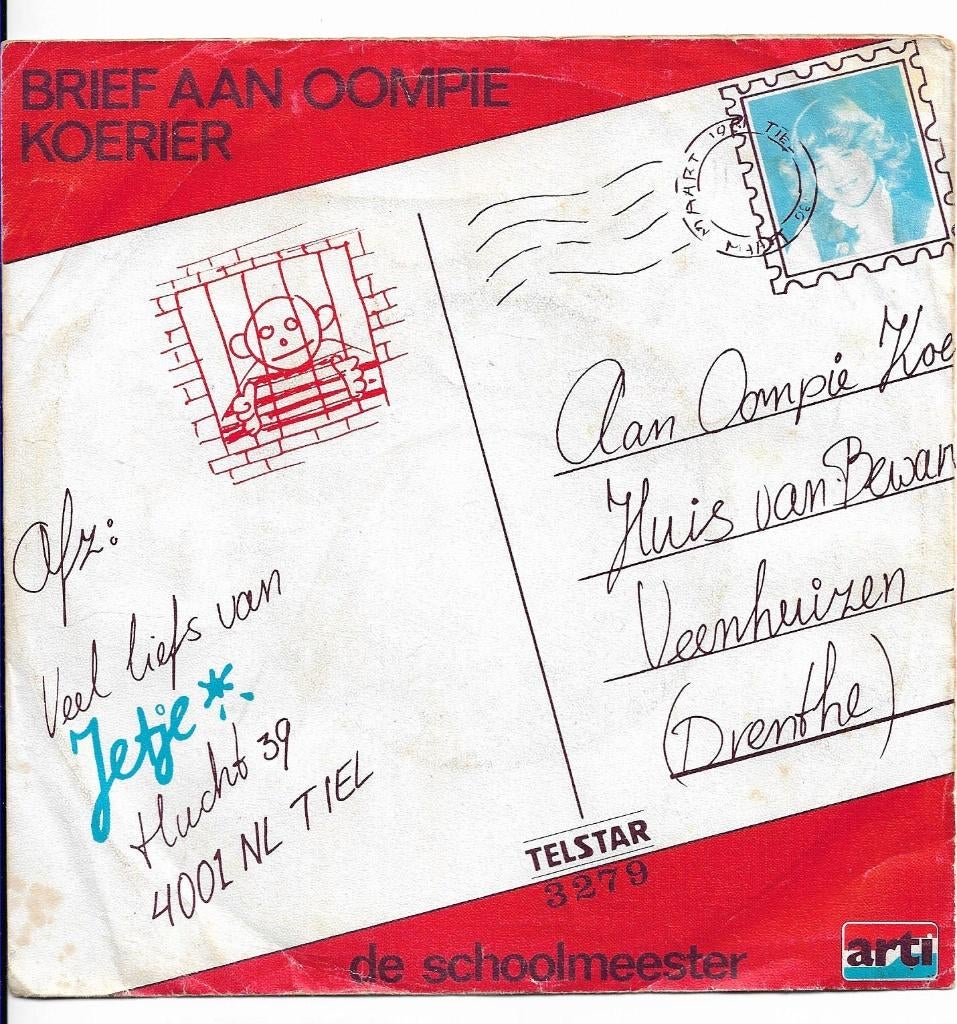 BRIEF AAN OOMPIE
KOERIER
TIEL
MAART 19
Aan Oompie Koe
Huis van Bewar
Veenhuizen
(Drenthe)
Afz:
Veel liefs van
Jetje
Hucht 39
4001 NL TIEL
TELSTAR
3279
de schoolmeester
arti